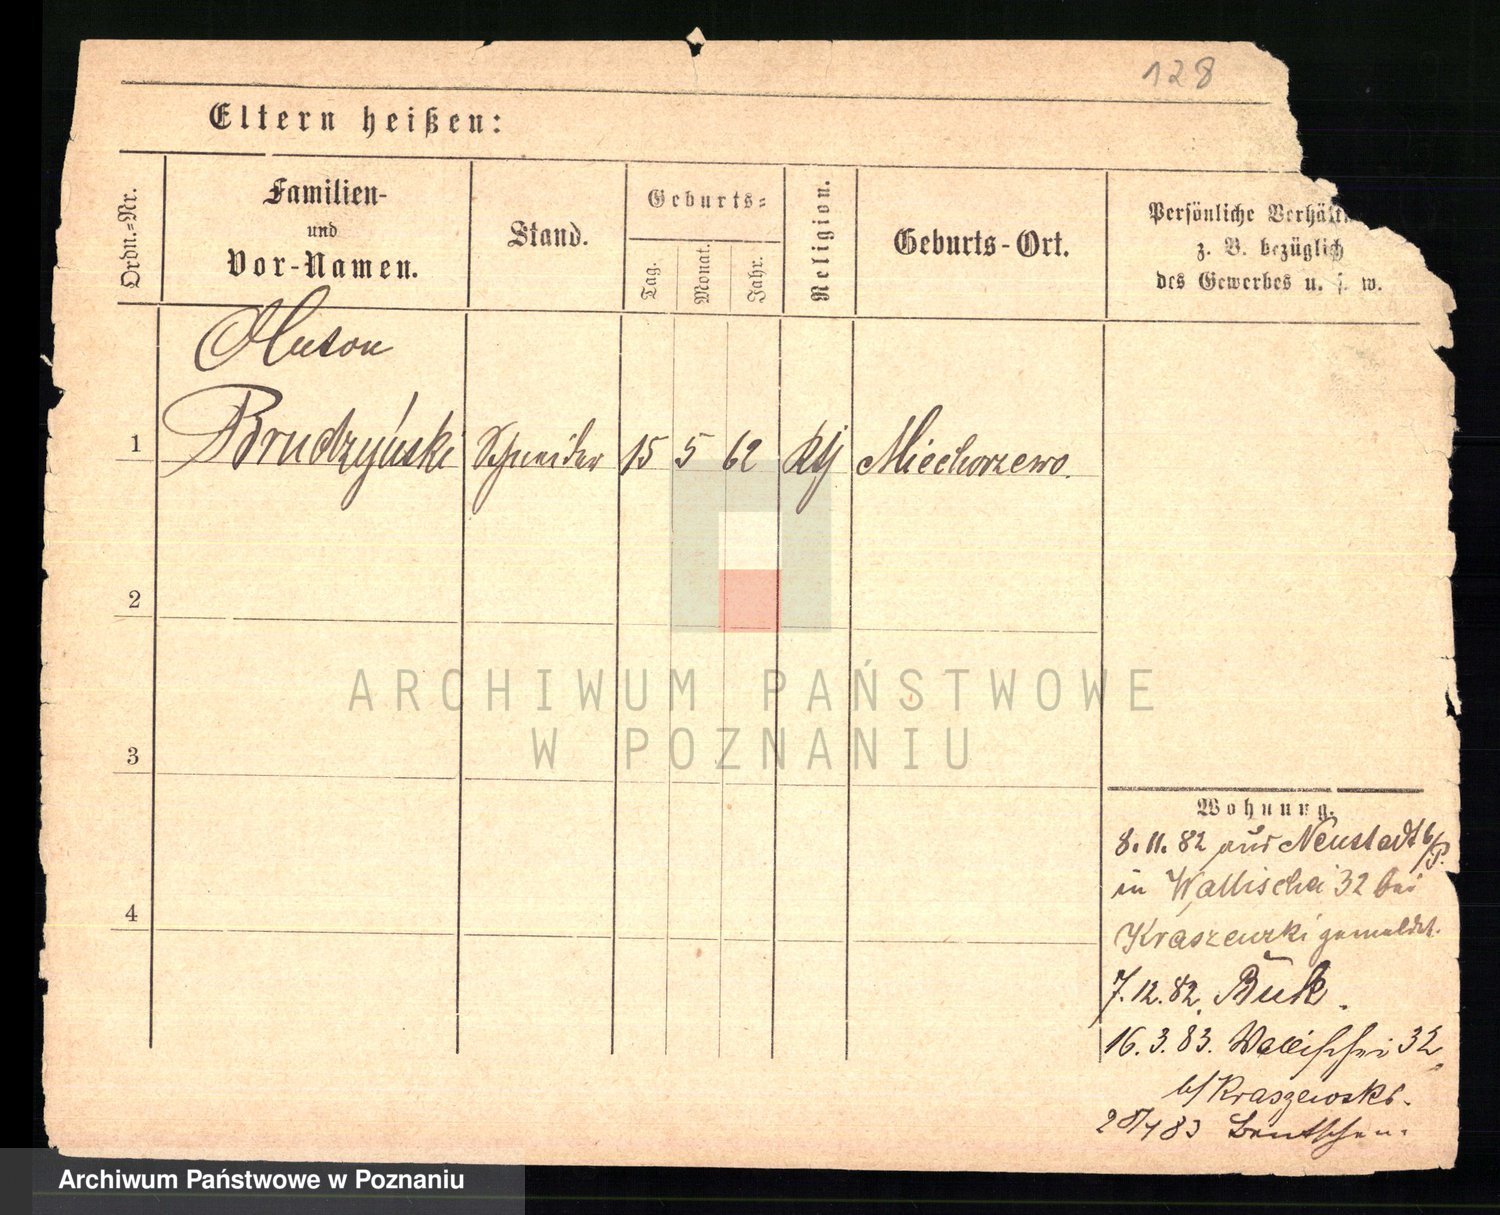 128
Eltern heißen:
Ordn.-Nr.
Familien-
und
Vor-Namen.
Stand.
Geburts-
Tag.
Monat.
Jahr.
Religion.
Geburts-Ort.
Persönliche Verhält
z. B. bezüglich
des Gewerbes u. s. w.
Anton
1 Brudzyński Schneider 15 5 62 Miechorzewo.
2
3
4
Wohnung.
8.11.82 aus Neustadt b/P.
in Wallischei 32 bei
Kraszewski gemeldet.
7.12.82. Buk.
16.3.83. Wallischei 32
b/ Kraszewski.
83 Bentschen.
ARCHIWUM PAŃSTWOWE
W POZNANIU
Archiwum Państwowe w Poznaniu